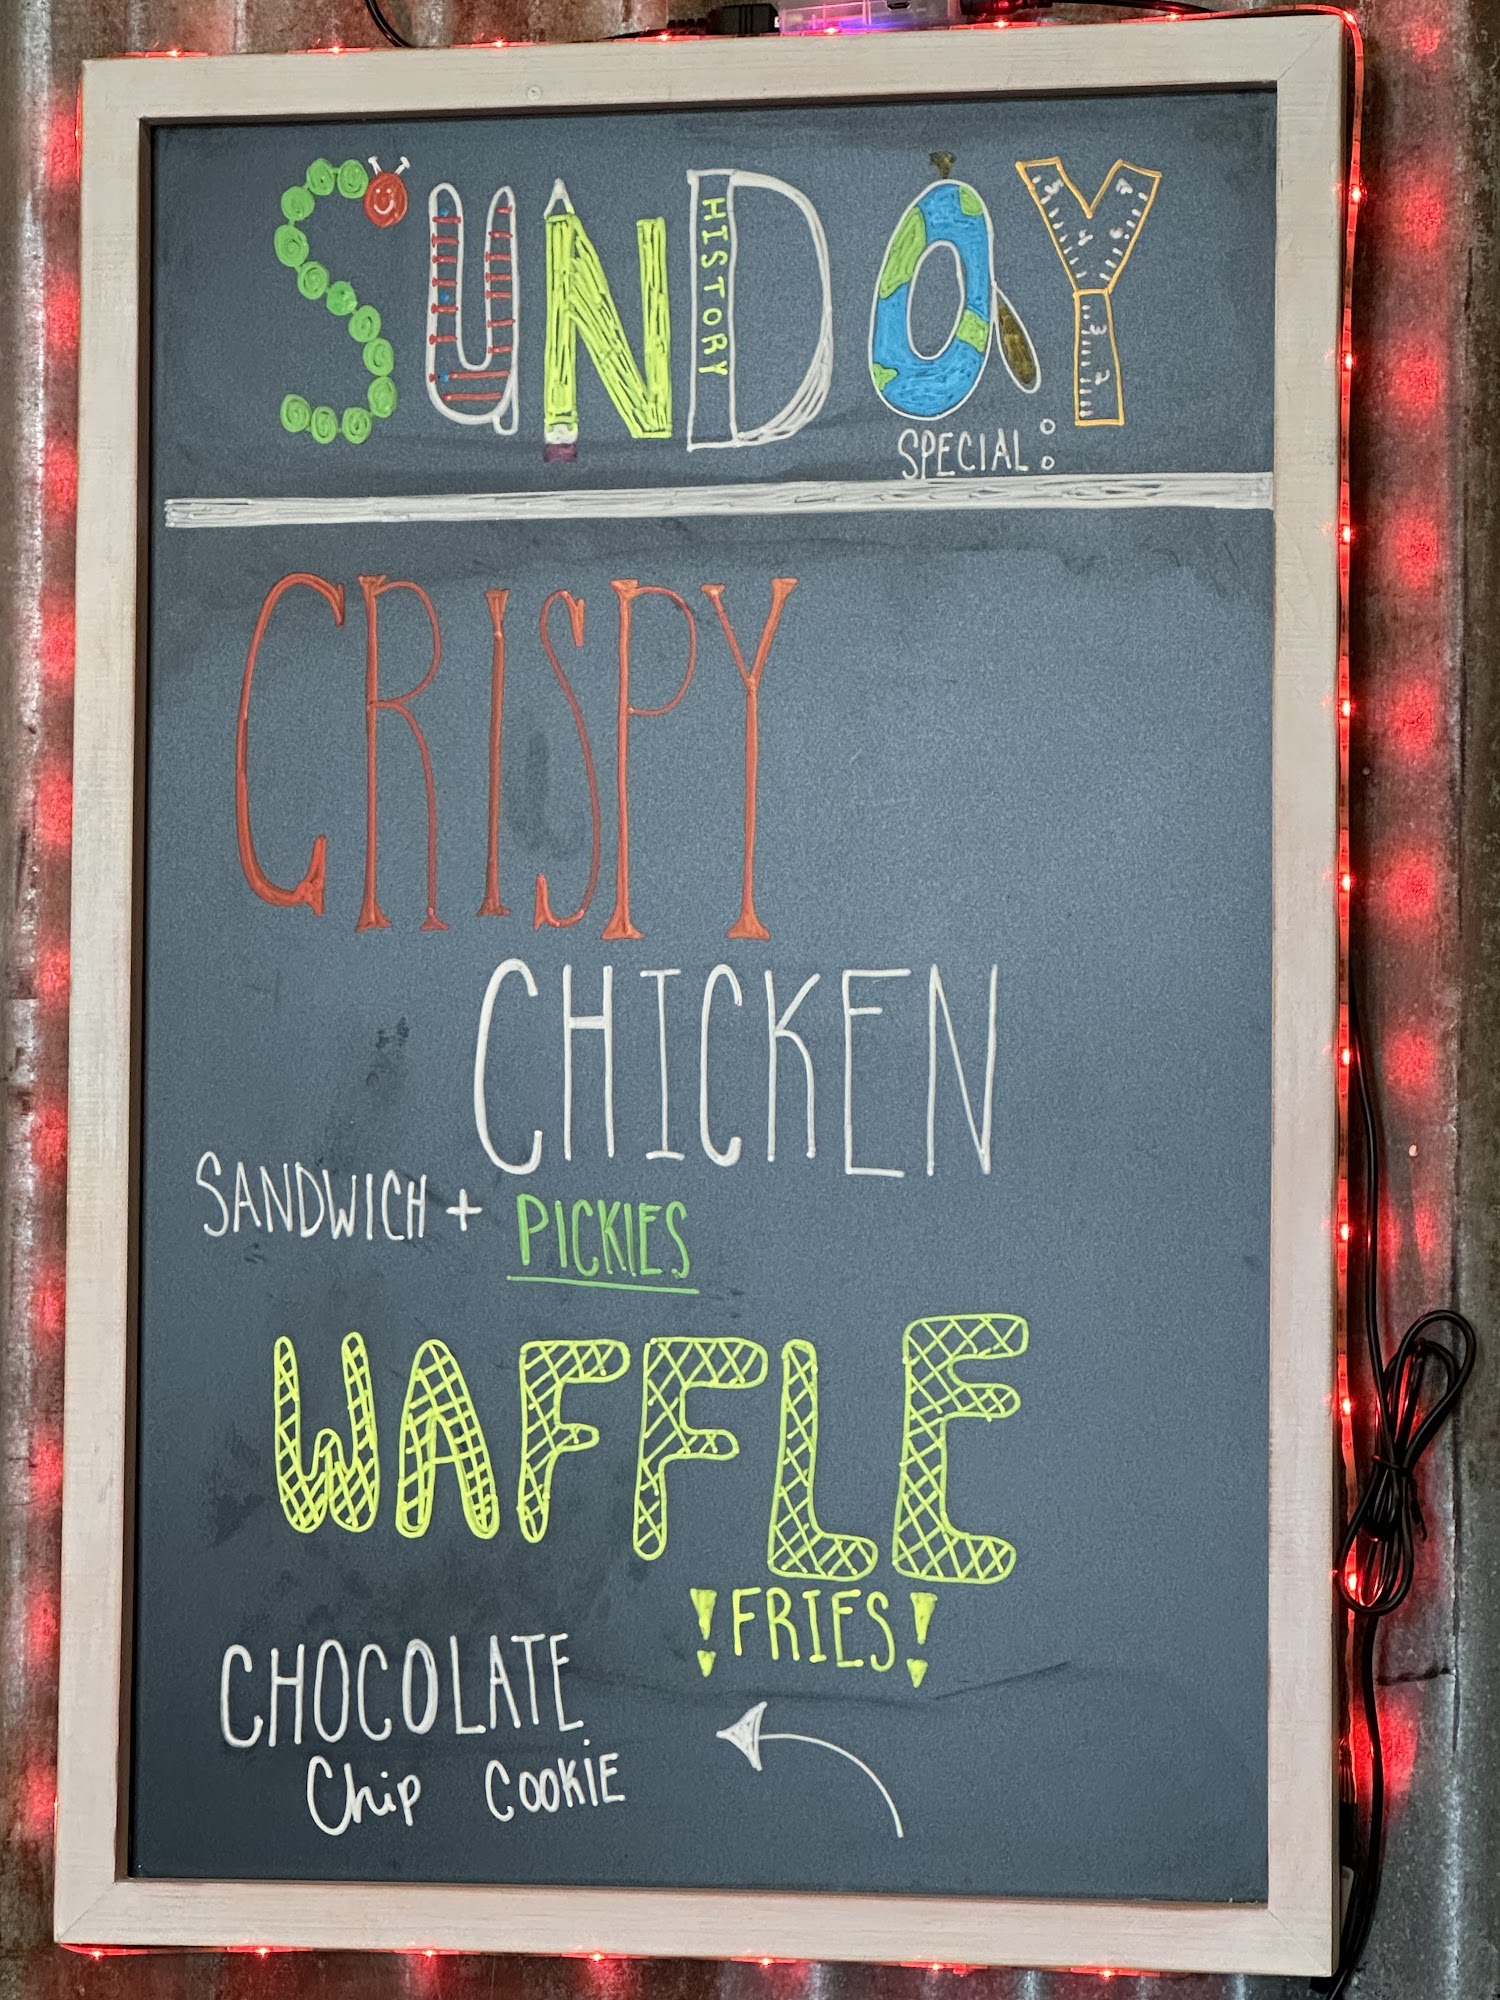 SUNDAY
HISTORY
SPECIAL:
CRISPY
CHICKEN
SANDWICH + PICKLES
WAFFLE
!FRIES!
CHOCOLATE
Chip COOKIE